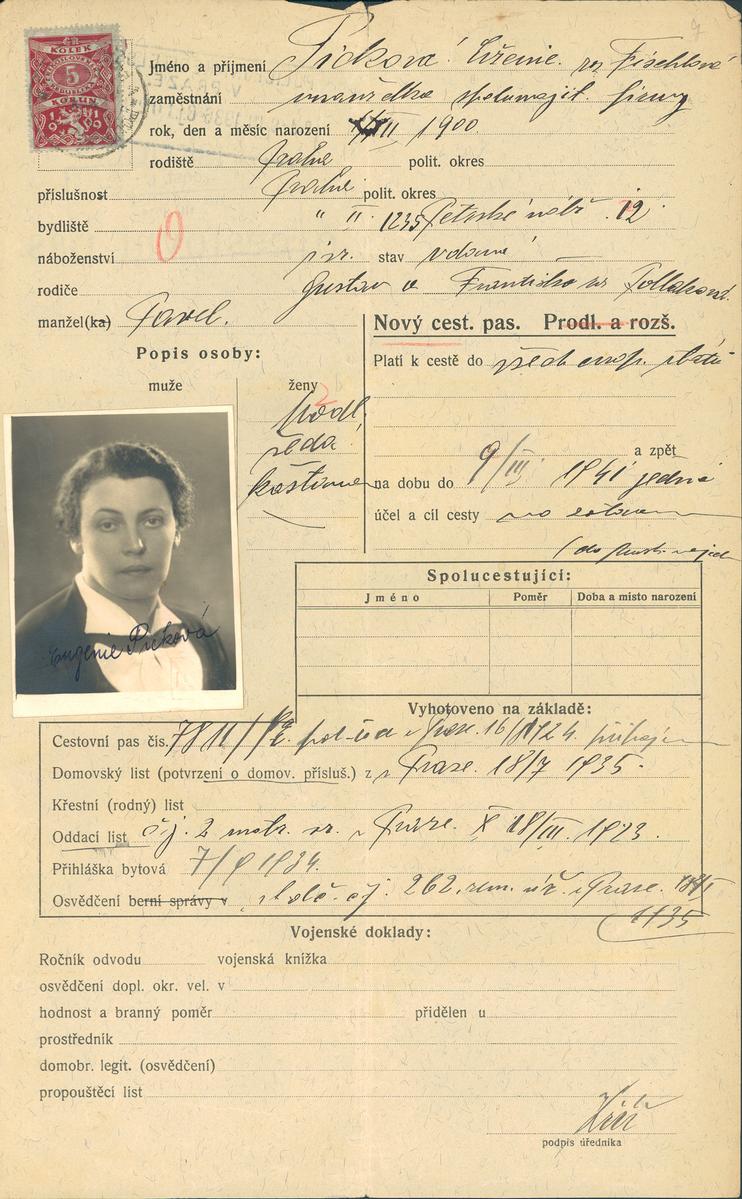 ČR KOLEK
5
KORUN
1919
Jméno a příjmení Picková Evženie roz Fischlová
zaměstnání manželka spolumajit. firmy
rok, den a měsíc narození II 1900
rodiště Praha polit. okres
příslušnost Praha polit. okres
bydliště " II. 1235 Petrské nábř. 12
náboženství isr. stav vdaná
rodiče Gustav a Františka roz Pollaková
manžel(ka) Pavel.
Nový cest. pas. Prodl. a rozš.
Popis osoby:
Platí k cestě do všech evrop. států
muže ženy
podl.
šedá
kaštanové
a zpět
na dobu do 9/III 1941 jedná
účel a cíl cesty
(do
Spolucestující:
Jméno Poměr Doba a místo narození
Eugenie Picková
Vyhotoveno na základě:
Cestovní pas čís. 7811 pol. v Praze 16/ 24.
Domovský list (potvrzení o domov. přísluš.) z Praze. 18/7 1935.
Křestní (rodný) list
Oddací list čj. 2 matr. v Praze. X 18/III. 1923.
Přihláška bytová 7/ 1934.
Osvědčení berní správy v čj. 262. zem. úř. v Praze.
1135
Vojenské doklady:
Ročník odvodu vojenská knížka
osvědčení dopl. okr. vel. v
hodnost a branný poměr přidělen u
prostředník
domobr. legit. (osvědčení)
propouštěcí list
podpis úředníka